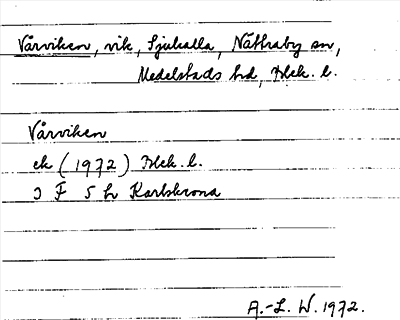 Vårviken, vik, Sjuhalla, Nättraby sn,
Medelstads hd, Blek. l.
Vårviken
ek (1972) Blek. l.
J F 5 h Karlskrona
A.-L. W. 1972.